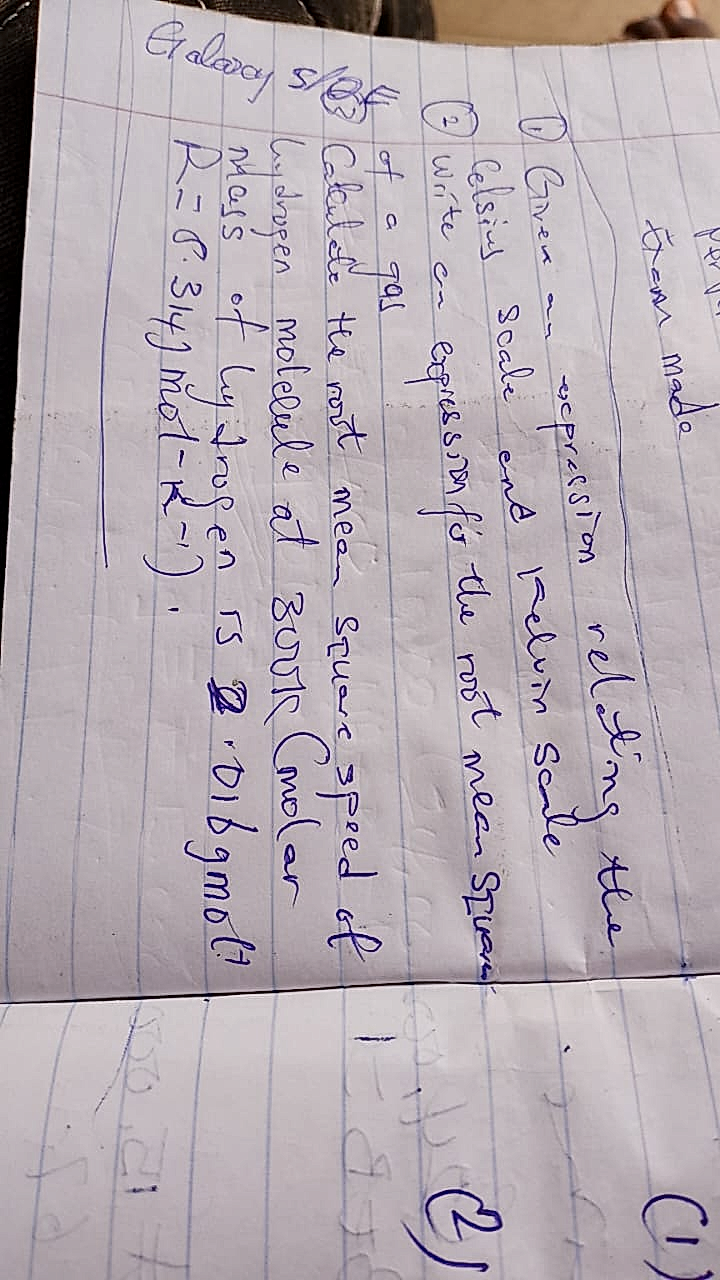 from made
① Given an expression relating the
Celsius scale and Kelvin scale
② Write an expression for the root mean square
of a gas
Calculate the root mean square speed of
hydrogen molecule at 300K (molar
mass of hydrogen is 2.016gmol-1
R=8.314J mol-K-1).
Galaxy
(1)
(2)